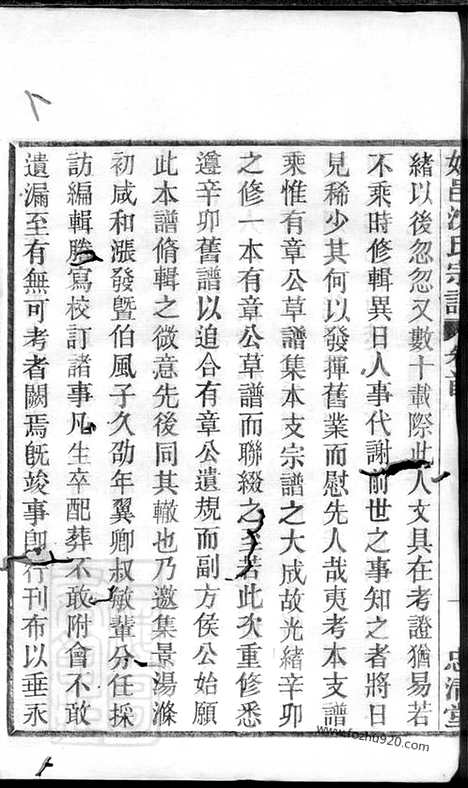 邑沈氏宗譜 卷首 忠清堂
緒以後忽忽又數十載際此人文具在考證猶易若
不乘時修輯異日人事代謝前世之事知之者將日
見稀少其何以發揮舊業而慰先人哉夷考本支譜
乘惟有章公草譜集本支宗譜之大成故光緒辛卯
之修一本有章公草譜而聯綴之至若此次重修悉
遵辛卯舊譜以追合有章公遺規而副方侯公始願
此本譜脩輯之微意先後同其轍也乃邀集景湯滌
初咸和漲發曁伯風子久劭年翼卿叔敏輩分任採
訪編輯謄寫校訂諸事凡生卒配葬不敢附會不敢
遺漏至有無可考者闕焉旣竣事卽行刊布以垂永
www.fozhu920.com